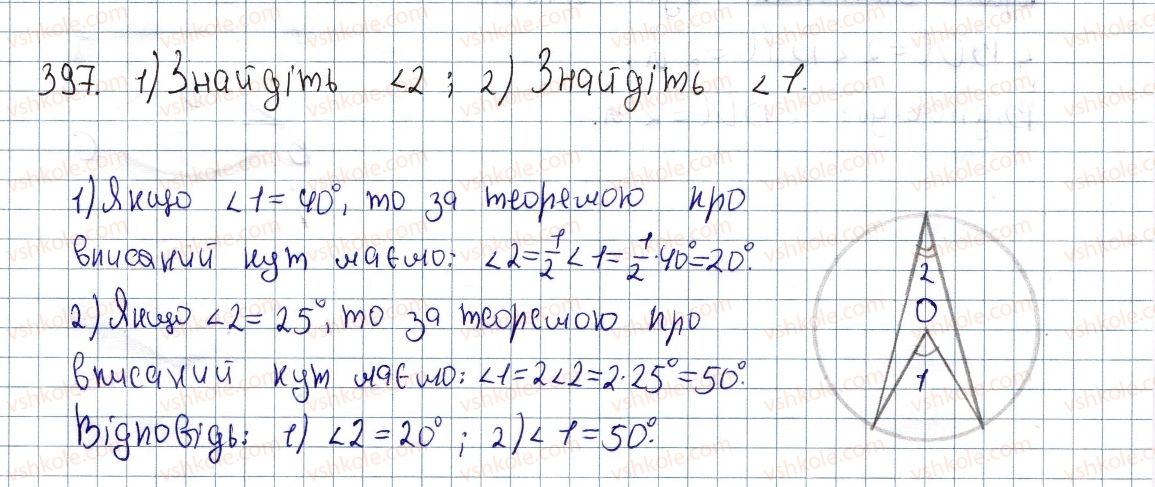 397. 1) Знайдіть <2 ; 2) Знайдіть <1.
1) Якщо <1 = 40°, то за теоремою про
вписаний кут маємо: <2 = 1/2 <1 = 1/2 · 40° = 20°.
2) Якщо <2 = 25°, то за теоремою про
вписаний кут маємо: <1 = 2<2 = 2 · 25° = 50°.
Відповідь: 1) <2 = 20° ; 2) <1 = 50°.
2
O
1
vshkole.com